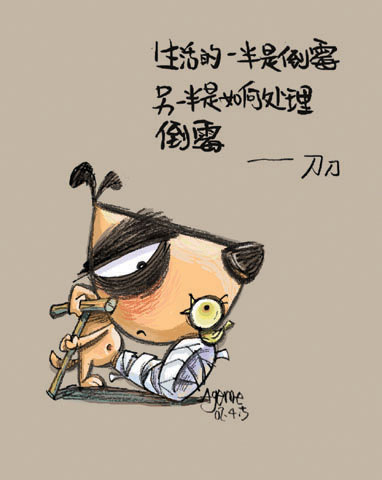 生活的一半是倒霉
另一半是如何处理
倒霉
——刀刀
Agonie
02.4.5